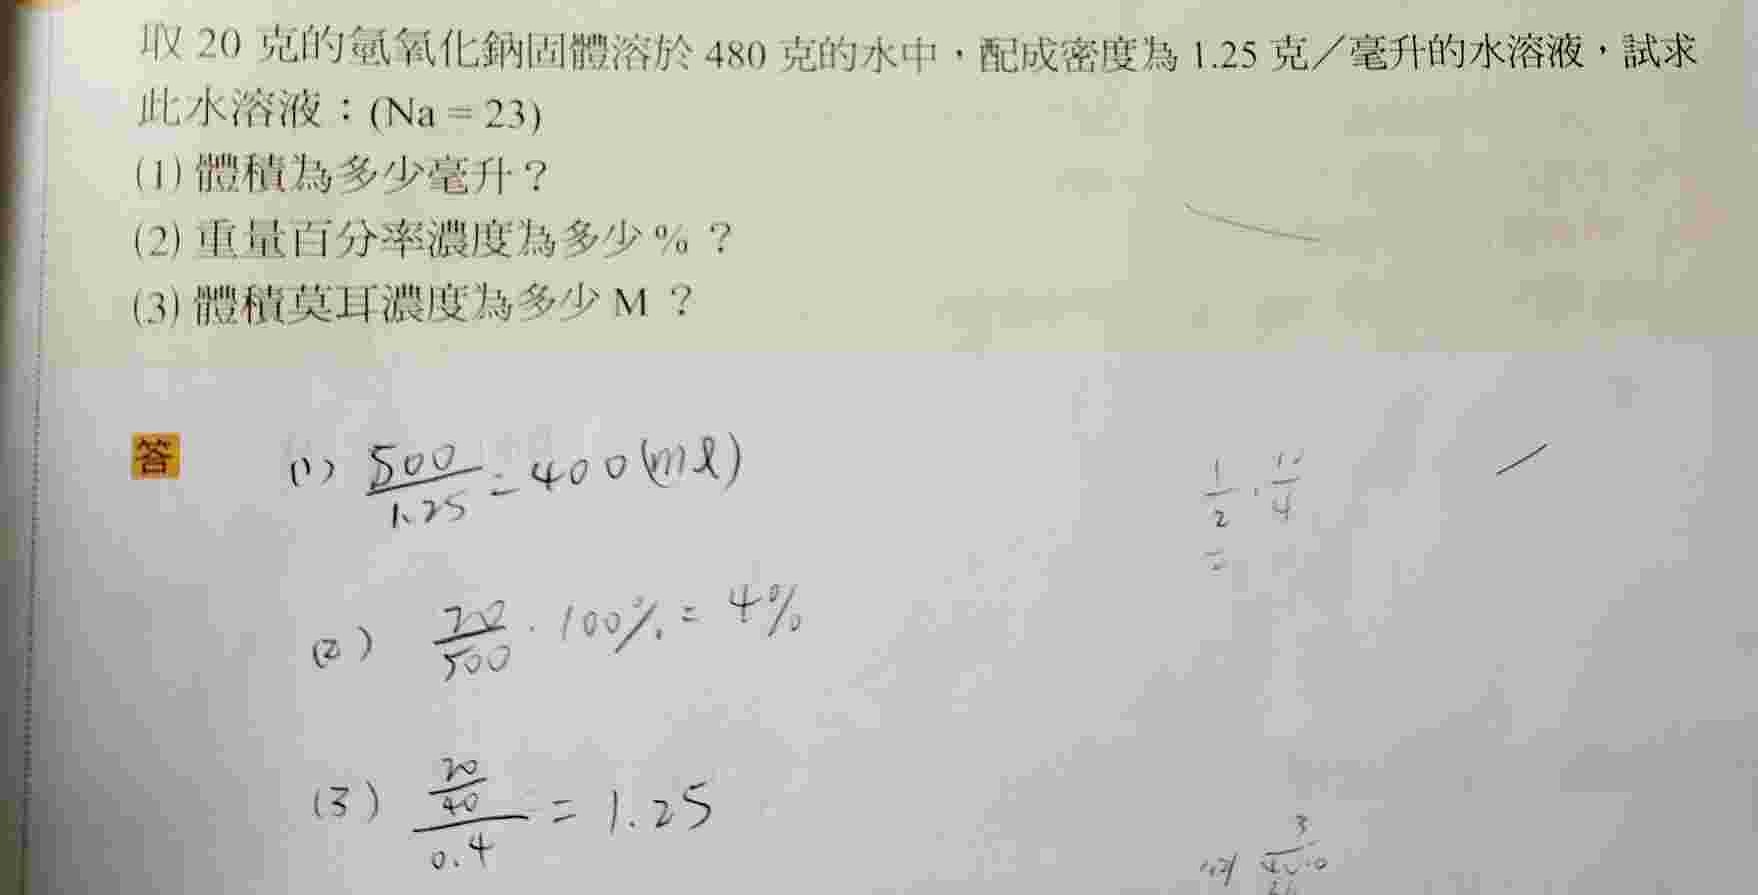 取 20 克的氫氧化鈉固體溶於 480 克的水中，配成密度為 1.25 克／毫升的水溶液，試求
此水溶液：(Na = 23)
(1) 體積為多少毫升？
(2) 重量百分率濃度為多少 % ？
(3) 體積莫耳濃度為多少 M ？
答
(1) 500/1.25 = 400 (ml)
1/2 · 10/4
=
(2) 20/500 · 100% = 4%
(3) (20/40)/0.4 = 1.25
3